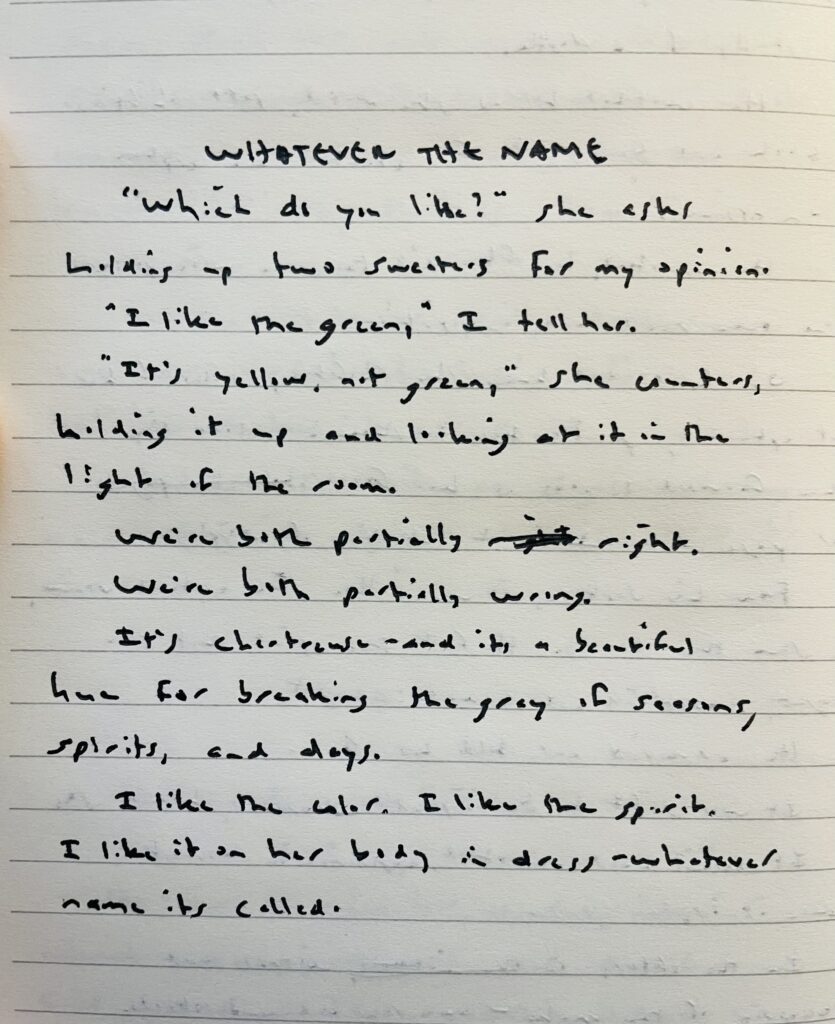 WHATEVER THE NAME
"Which do you like?" she asks
holding up two sweaters for my opinion.
"I like the green," I tell her.
"It's yellow, not green," she counters,
holding it up and looking at it in the
light of the room.
We're both partially right.
We're both partially wrong.
It's chartreuse - and its a beautiful
hue for breaking the gray of seasons,
spirits, and days.
I like the color. I like the spirit.
I like it on her body in dress - whatever
name its called.